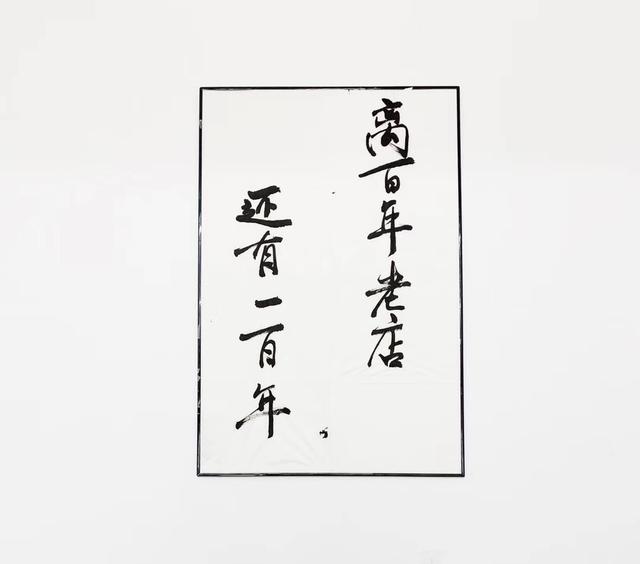 离百年老店
还有一百年